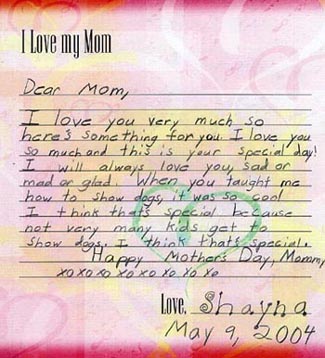 I Love my Mom
Dear Mom,
I love you very much so
here's something for you. I love you
so much and this is your special day!
I will always love you, sad or
mad or glad. When you taught me
how to show dogs, it was so cool
I think that's special because
not very many kids get to
show dogs. I think that's special.
Happy Mother's Day, Mommy,
xo xo xo xo xo xo xo xo
Love, Shayna
May 9, 2004